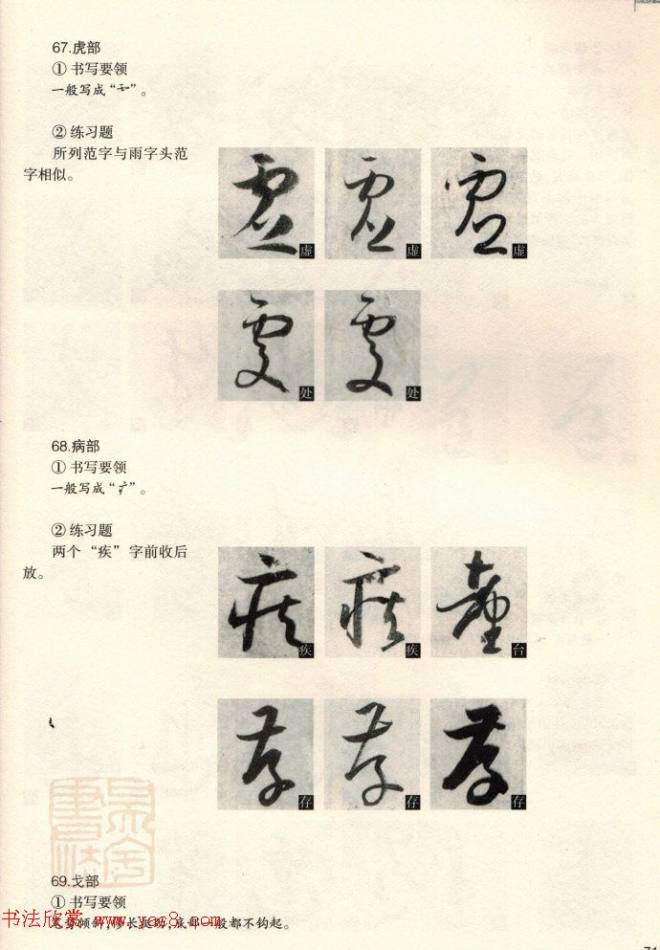 67.虎部
① 书写要领
一般写成“ ”。
② 练习题
所列范字与雨字头范
字相似。
虚 虚 虚
处 处
68.病部
① 书写要领
一般写成“疒”。
② 练习题
两个“疾”字前收后
放。
疾 疾 台
存 存 存
69.戈部
① 书写要领
书法欣赏 www.yac8.com
底部一般都不钩起。